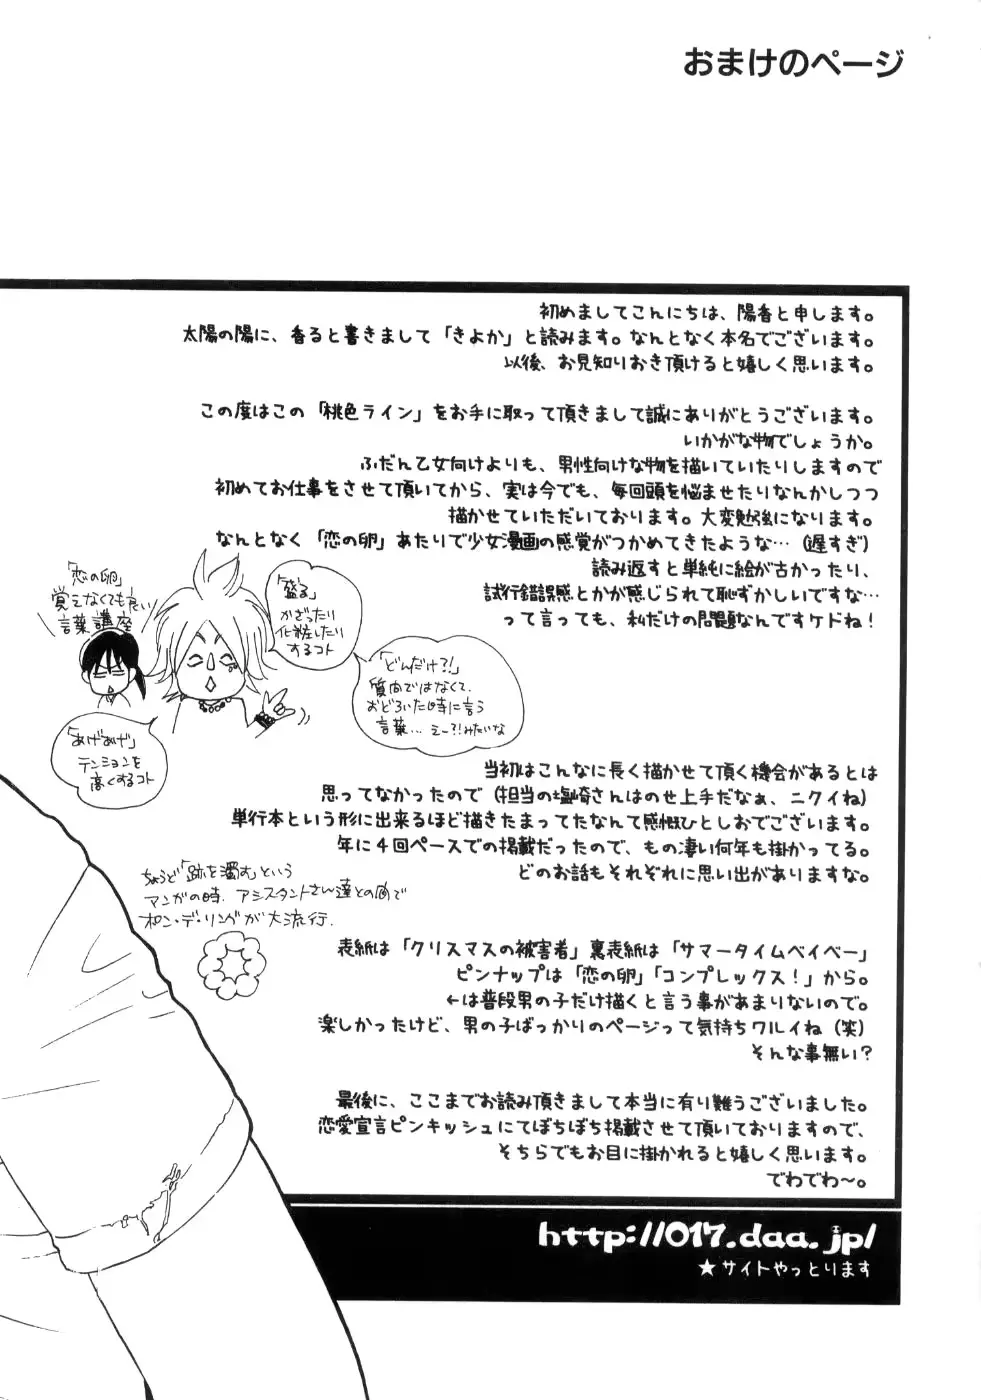 おまけのページ
初めましてこんにちは、陽香と申します。
太陽の陽に、香ると書きまして「きよか」と読みます。なんとなく本名でございます。
以後、お見知りおき頂けると嬉しく思います。
この度はこの「桃色ライン」をお手に取って頂きまして誠にありがとうございます。
いかがな物でしょうか。
ふだん乙女向けよりも、男性向けな物を描いていたりしますので
初めてお仕事をさせて頂いてから、実は今でも、毎回頭を悩ませたりなんかしつつ
描かせていただいております。大変勉強になります。
なんとなく「恋の卵」あたりで少女漫画の感覚がつかめてきたような…（遅すぎ）
読み返すと単純に絵が古かったり、
試行錯誤感とかが感じられて恥ずかしいですな…
って言っても、私だけの問題なんですケドね！
「恋の卵」
覚えなくても良い
言葉講座
「盛る」
かざったり
化粧したり
するコト
「どんだけ?!」
質問ではなくて、
おどろいた時に言う
言葉… えー?!みたいな
「あげあげ」
テンションを
高くするコト
当初はこんなに長く描かせて頂く機会があるとは
思ってなかったので（担当の塩崎さんはのせ上手だなぁ、ニクイね）
単行本という形に出来るほど描きたまってたなんて感慨ひとしおでございます。
年に４回ペースでの掲載だったので、もの凄い何年も掛かってる。
どのお話もそれぞれに思い出がありますな。
ちょうど「跡を濁す」という
マンガの時、アシスタントさん達との間で
ポン・デ・リングが大流行．
表紙は「クリスマスの被害者」裏表紙は「サマータイムベイベー」
ピンナップは「恋の卵」「コンプレックス！」から。
←は普段男の子だけ描くと言う事があまりないので。
楽しかったけど、男の子ばっかりのページって気持ちワルイね（笑）
そんな事無い？
最後に、ここまでお読み頂きまして本当に有り難うございました。
恋愛宣言ピンキッシュにてぼちぼち掲載させて頂いておりますので、
そちらでもお目に掛かれると嬉しく思います。
でわでわ～。
http://017.daa.jp/
★サイトやっとります